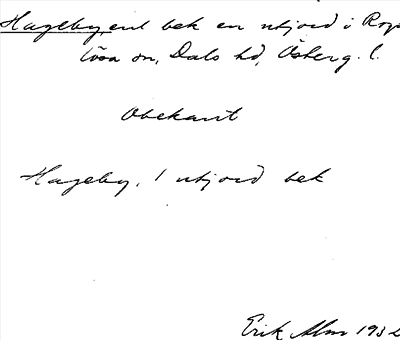 Hageby, enl bek en utjord i Rap
lösa sn, Dals hd, Österg. l.
Obekant
Hageby, 1 utjord bek
Erik Alm 1932